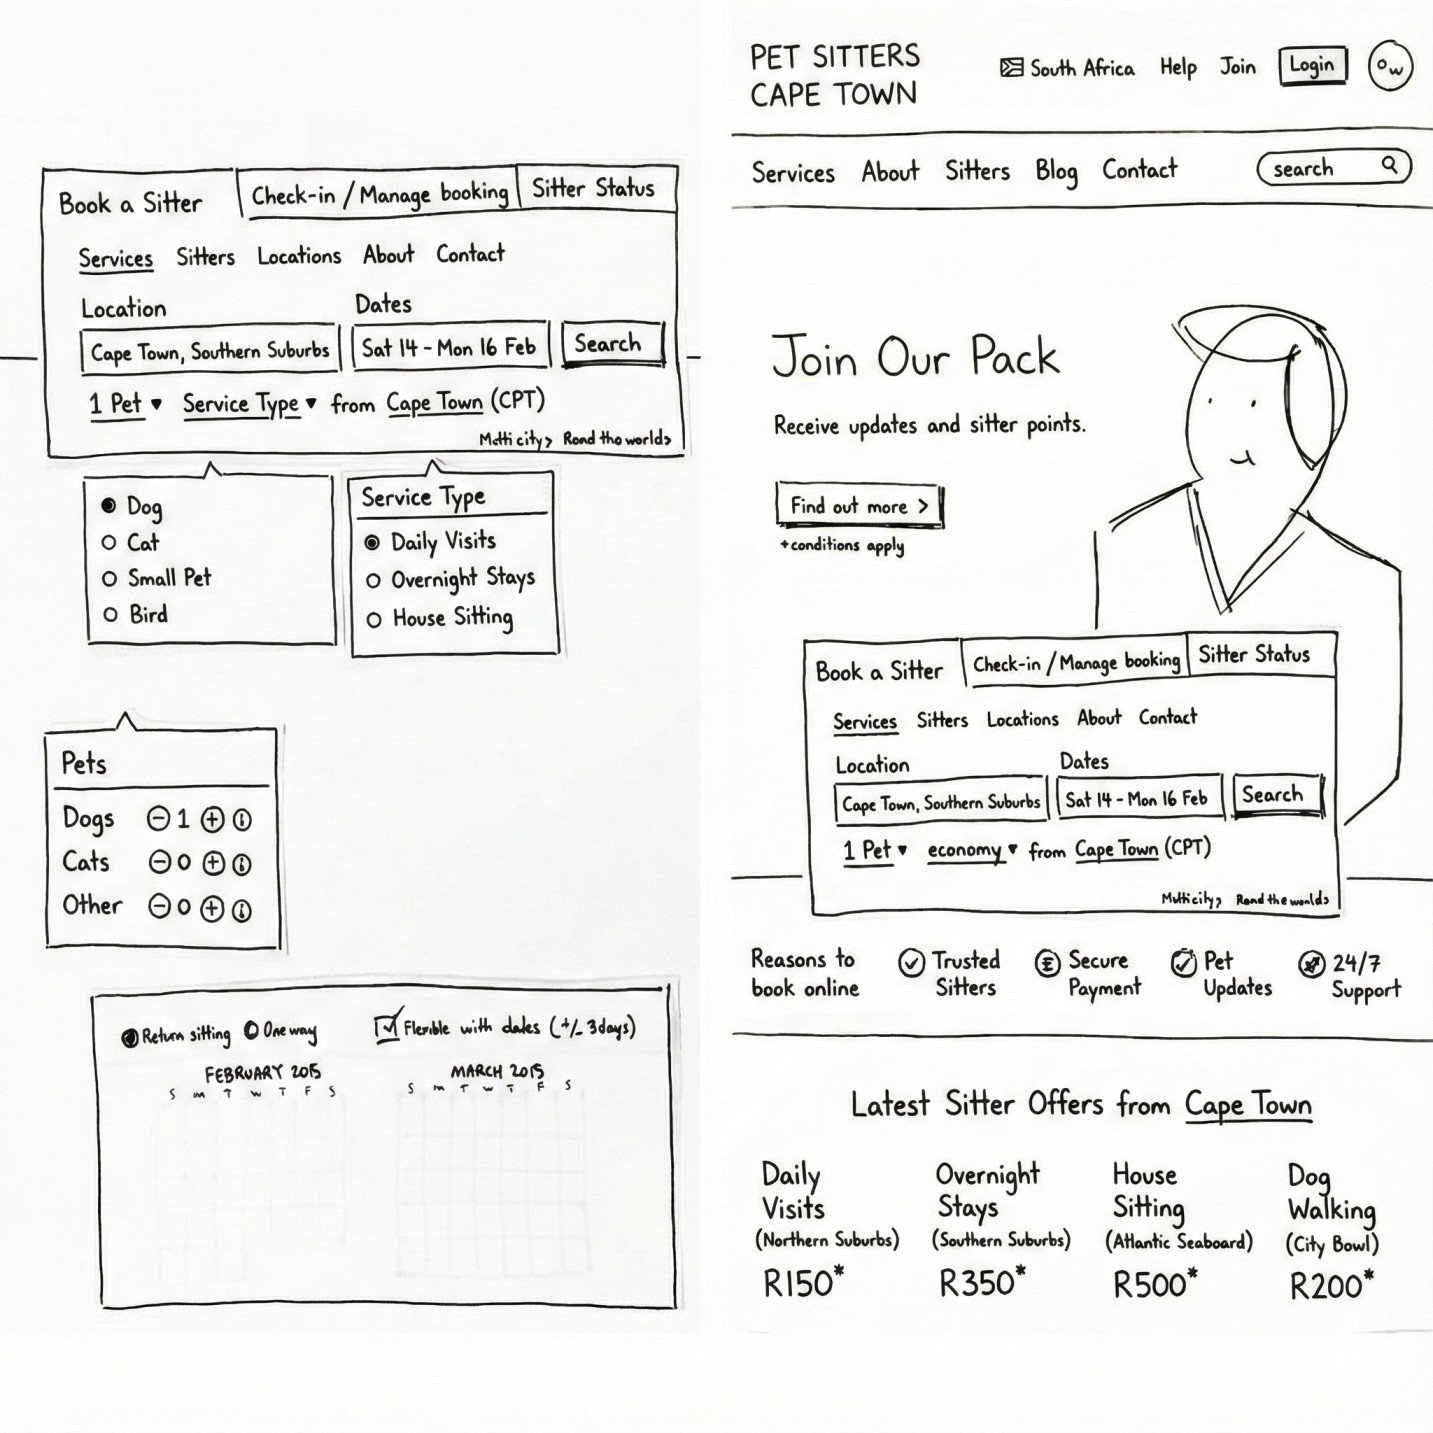 Book a Sitter
Check-in / Manage booking
Sitter Status
Services Sitters Locations About Contact
Location
Dates
Cape Town, Southern Suburbs
Sat 14 - Mon 16 Feb
Search
1 Pet ▼ Service Type ▼ from Cape Town (CPT)
Dog
Cat
Small Pet
Bird
Service Type
Daily Visits
Overnight Stays
House Sitting
Pets
Dogs 1
Cats 0
Other 0
Return sitting One way
Flexible with dates (+/- 3days)
FEBRUARY 2015
S m T w T F S
MARCH 2015
S m T w T F S
PET SITTERS
CAPE TOWN
South Africa Help Join Login
Services About Sitters Blog Contact
search
Join Our Pack
Receive updates and sitter points.
Find out more >
+conditions apply
Book a Sitter
Check-in / Manage booking
Sitter Status
Services Sitters Locations About Contact
Location
Dates
Cape Town, Southern Suburbs
Sat 14 - Mon 16 Feb
Search
1 Pet ▼ economy ▼ from Cape Town (CPT)
Reasons to
book online
Trusted
Sitters
Secure
Payment
Pet
Updates
24/7
Support
Latest Sitter Offers from Cape Town
Daily
Visits
(Northern Suburbs)
R150*
Overnight
Stays
(Southern Suburbs)
R350*
House
Sitting
(Atlantic Seaboard)
R500*
Dog
Walking
(City Bowl)
R200*